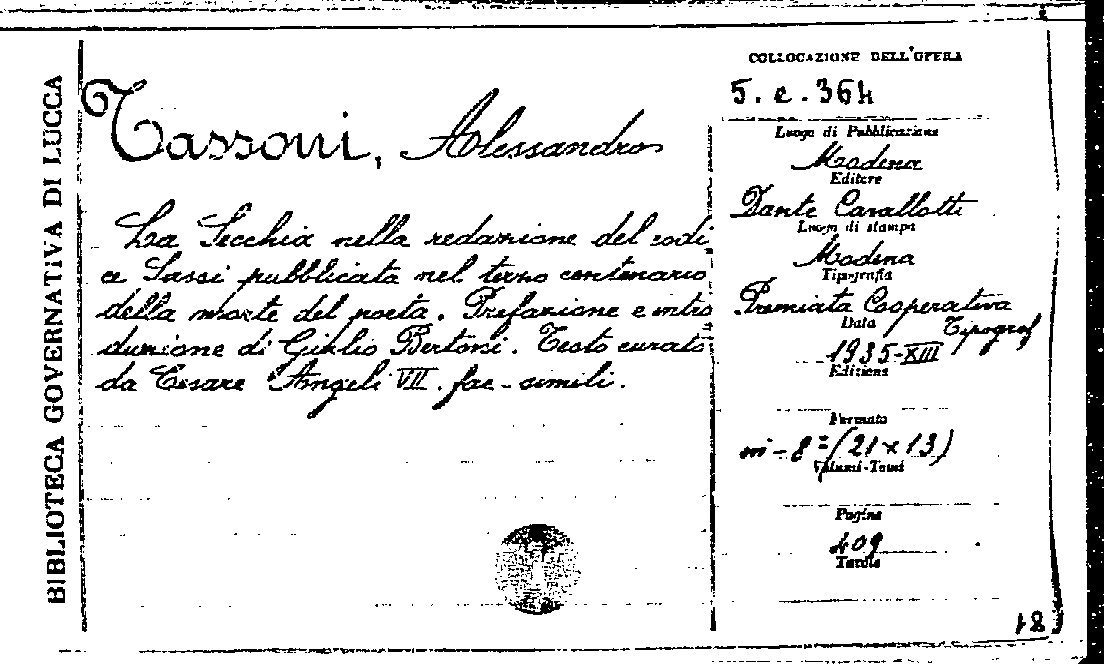 BIBLIOTECA GOVERNATIVA DI LUCCA
Tassoni, Alessandro
La Secchia nella redazione del codi
ce Sassi pubblicata nel terzo centenario
della morte del poeta. Prefazione e intro
duzione di Giulio Bertoni. Testo curato
da Cesare Angeli VII. fac-simili.
COLLOCAZIONE DELL'OPERA
5. e. 364
Luogo di Pubblicazione
Modena
Editore
Dante Cavallotti
Luogo di stampa
Modena
Tipografia
Premiata Cooperativa
Tipograf
Data
1935-XIII
Edizione
Formato
in-8º (21x13)
Volumi-Tomi
Pagine
409
Tavole
18